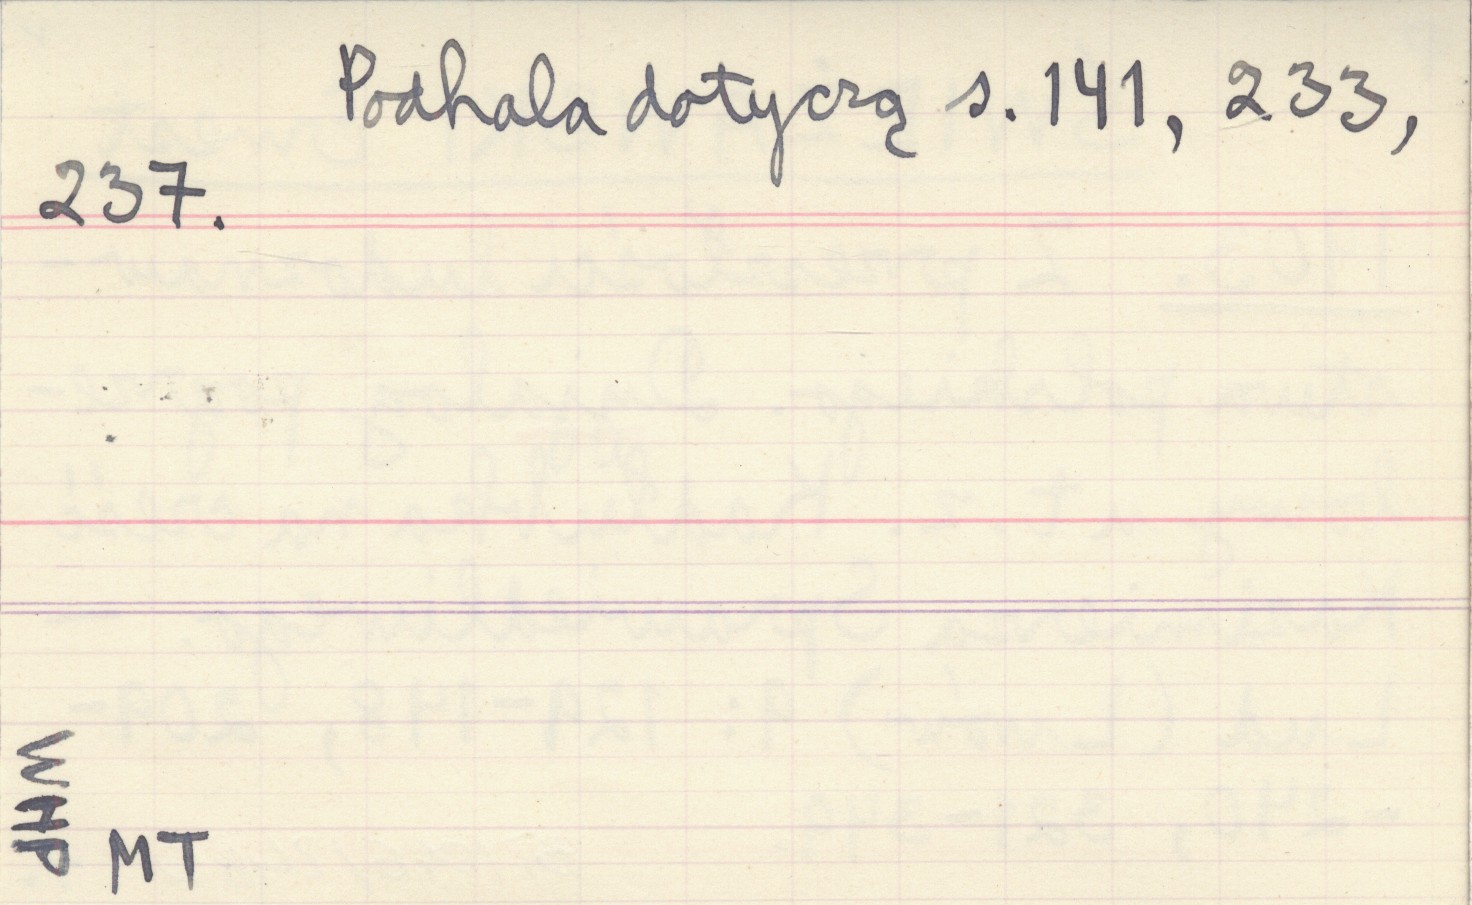 Podhala dotyczą s. 141, 233,
237.
WHP
MT